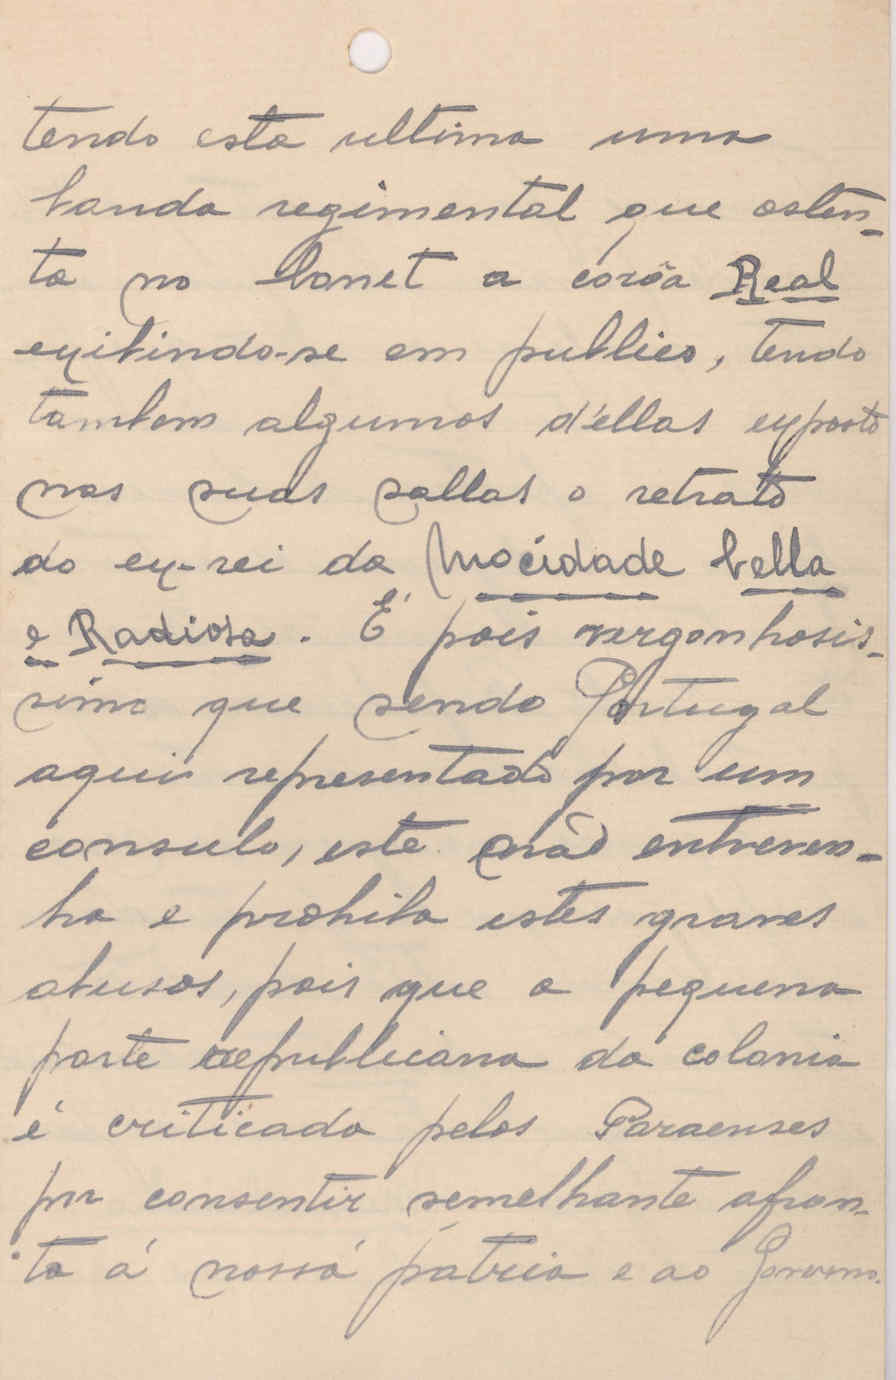 tendo esta ultima uma
banda regimental que osten-
ta no bonet a corôa Real
exibindo-se em publico, tendo
tambem algumas d'ellas exposto
nas suas sallas o retrato
do ex-rei da Mocidade bella
e Radiosa. É pois vergonhosis-
simo que sendo Portugal
aqui representado por um
consulo, este não entreven-
ha e prohiba estes graves
abusos, pois que a pequena
parte republicana da colonia
é criticada pelos Paraenses
por consentir semelhante afron-
ta á nossa patria e ao Governo.